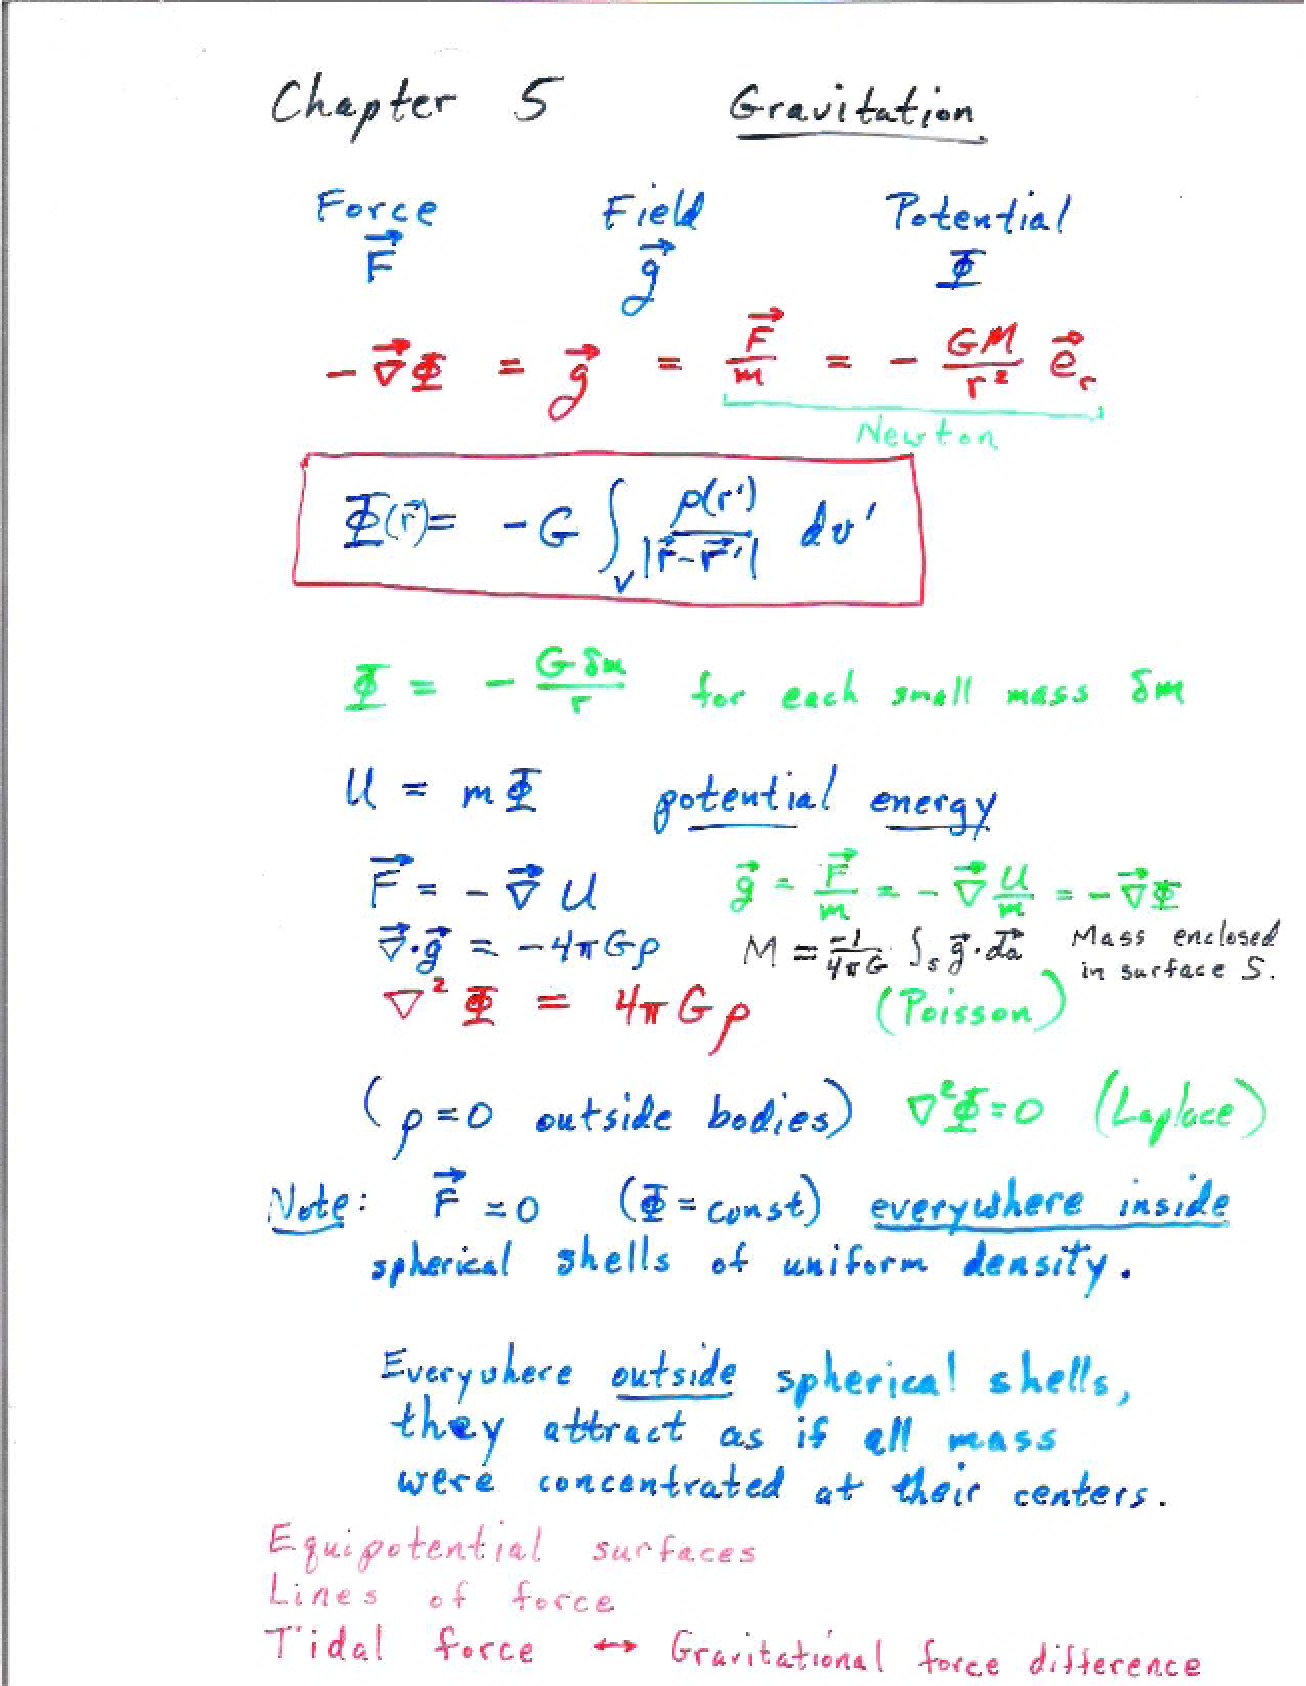 Chapter 5 Gravitation
Force Field Potential
F⃗ g⃗ Φ
-∇⃗Φ = g⃗ = F⃗/m = - GM/r² e⃗r
Newton
Φ(r⃗) = -G ∫V ρ(r') / |r⃗-r⃗'| dv'
Φ = - Gδm/r for each small mass δm
U = mΦ potential energy
F⃗ = -∇⃗U g⃗ = F⃗/m = -∇⃗ U/m = -∇⃗Φ
∇⃗·g⃗ = -4πGρ M = -1/4πG ∫S g⃗·da⃗ Mass enclosed
in surface S.
∇²Φ = 4πGρ (Poisson)
(ρ=0 outside bodies) ∇²Φ=0 (Laplace)
Note: F⃗ =0 (Φ=const) everywhere inside
spherical shells of uniform density.
Everywhere outside spherical shells,
they attract as if all mass
were concentrated at their centers.
Equipotential surfaces
Lines of force
Tidal force ↔ Gravitational force difference